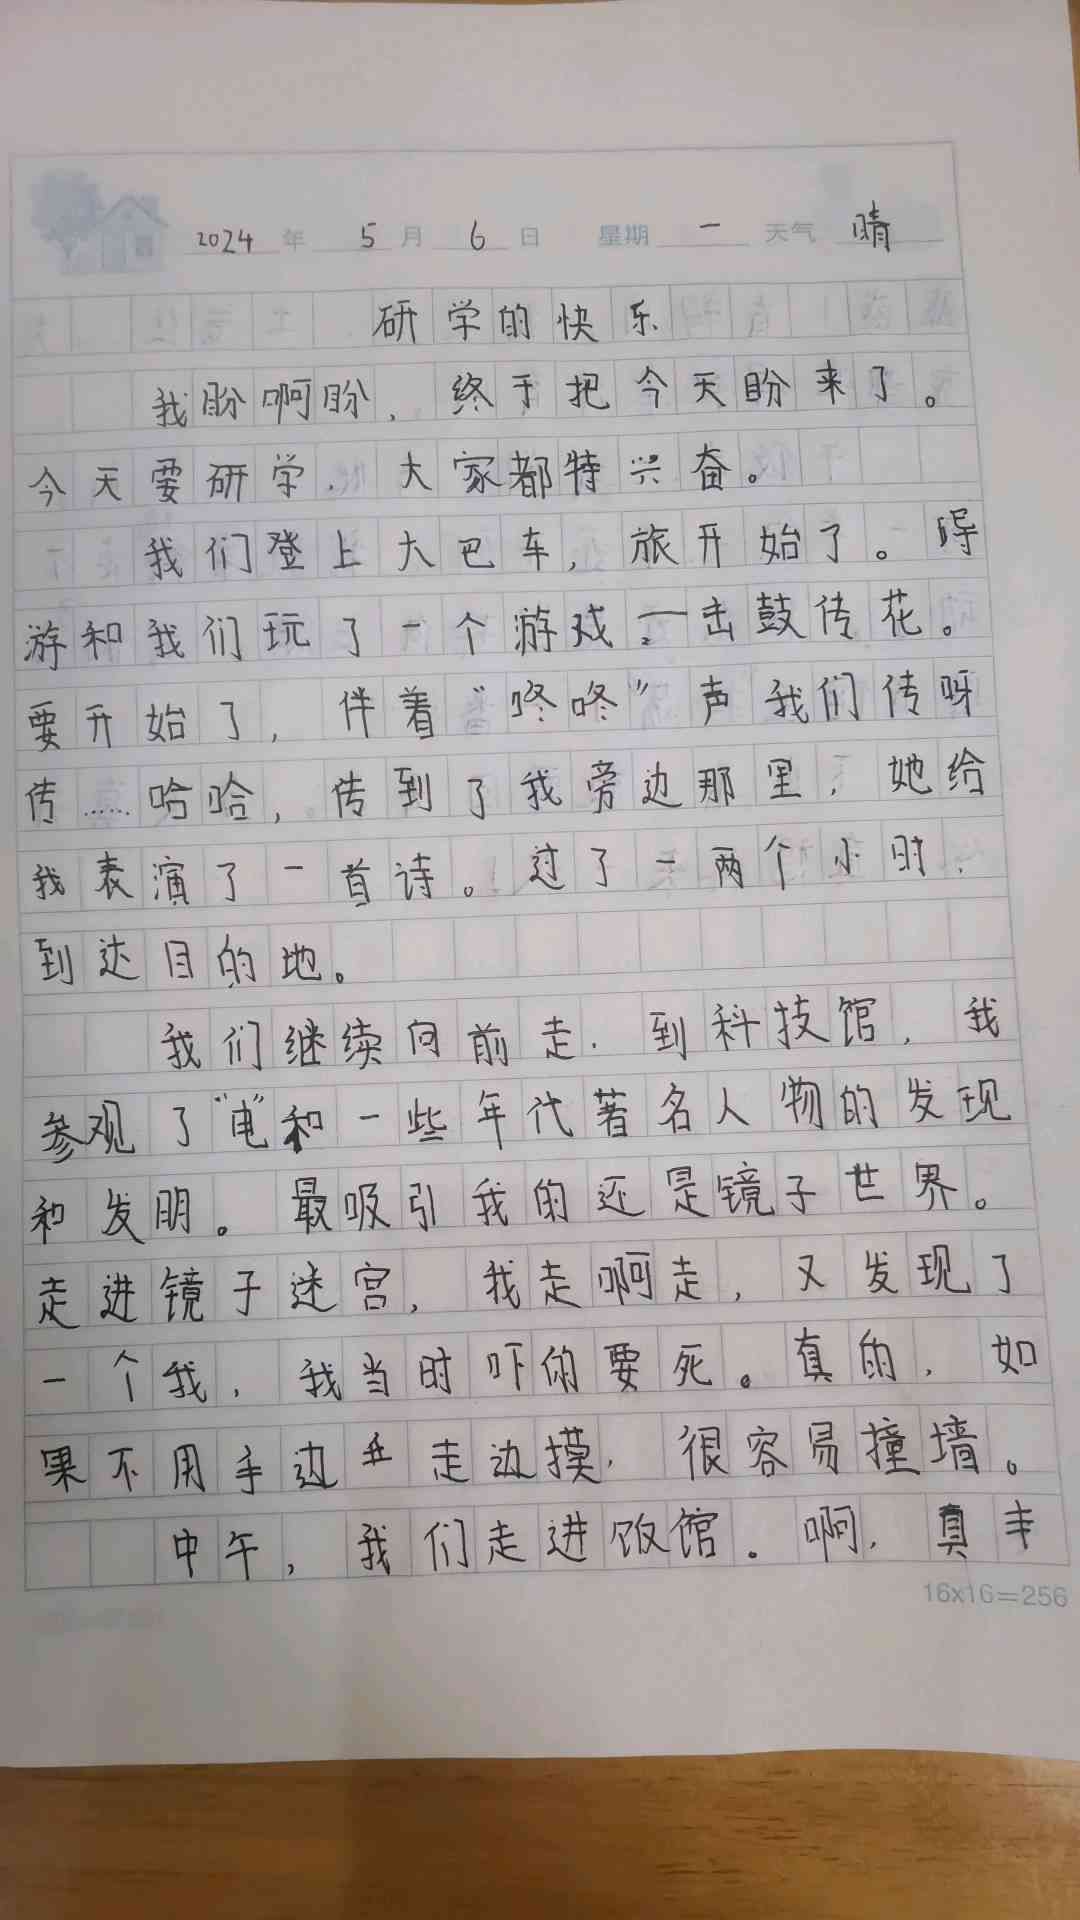 2024 年 5 月 6 日 星期 一 天气 晴
研学的快乐
我盼啊盼，终于把今天盼来了。
今天要研学，大家都特兴奋。
我们登上大巴车，旅开始了。导
游和我们玩了一个游戏：一击鼓传花。
要开始了，伴着“咚咚”声我们传呀
传……哈哈，传到了我旁边那里，她给
我表演了一首诗。过了一两个小时，
到达目的地。
我们继续向前走，到科技馆，我
参观了“电”和一些年代著名人物的发现
和发明。最吸引我的还是镜子世界。
走进镜子迷宫，我走啊走，又发现了
一个我，我当时吓的要死。真的，如
果不用手边走边摸，很容易撞墙。
中午，我们走进饭馆。啊，真丰
16x16=256